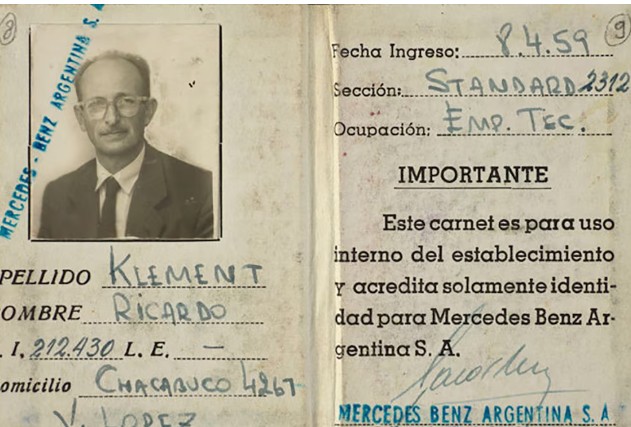 8
MERCEDES - BENZ ARGENTINA S. A
PELLIDO KLEMENT
OMBRE RICARDO
. I. 212.430 L. E. —
omicilio CHACABUCO 4267
V. LOPEZ
9
Fecha Ingreso: 8.4.59
Sección: STANDARD 2312
Ocupación: EMP. TEC.
IMPORTANTE
Este carnet es para uso
interno del establecimiento
y acredita solamente identi-
dad para Mercedes Benz Ar-
gentina S. A.
MERCEDES BENZ ARGENTINA S. A